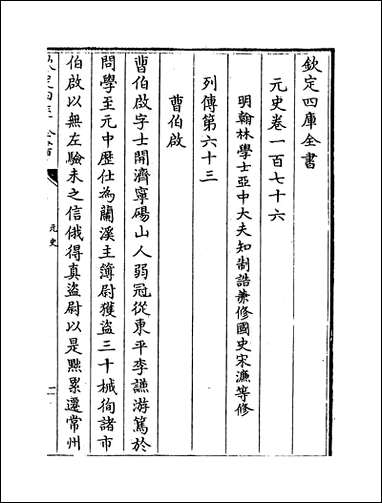 欽定四庫全書
元史卷一百七十六
明翰林學士亞中大夫知制誥兼修國史宋濂等修
列傳第六十三
曹伯啟
曹伯啟字士開濟寧碭山人弱冠從東平李謙游篤於
問學至元中歴仕為蘭溪主簿尉獲盜三十械徇諸市
伯啟以無左驗未之信俄得真盜尉以是黜累遷常州
元史